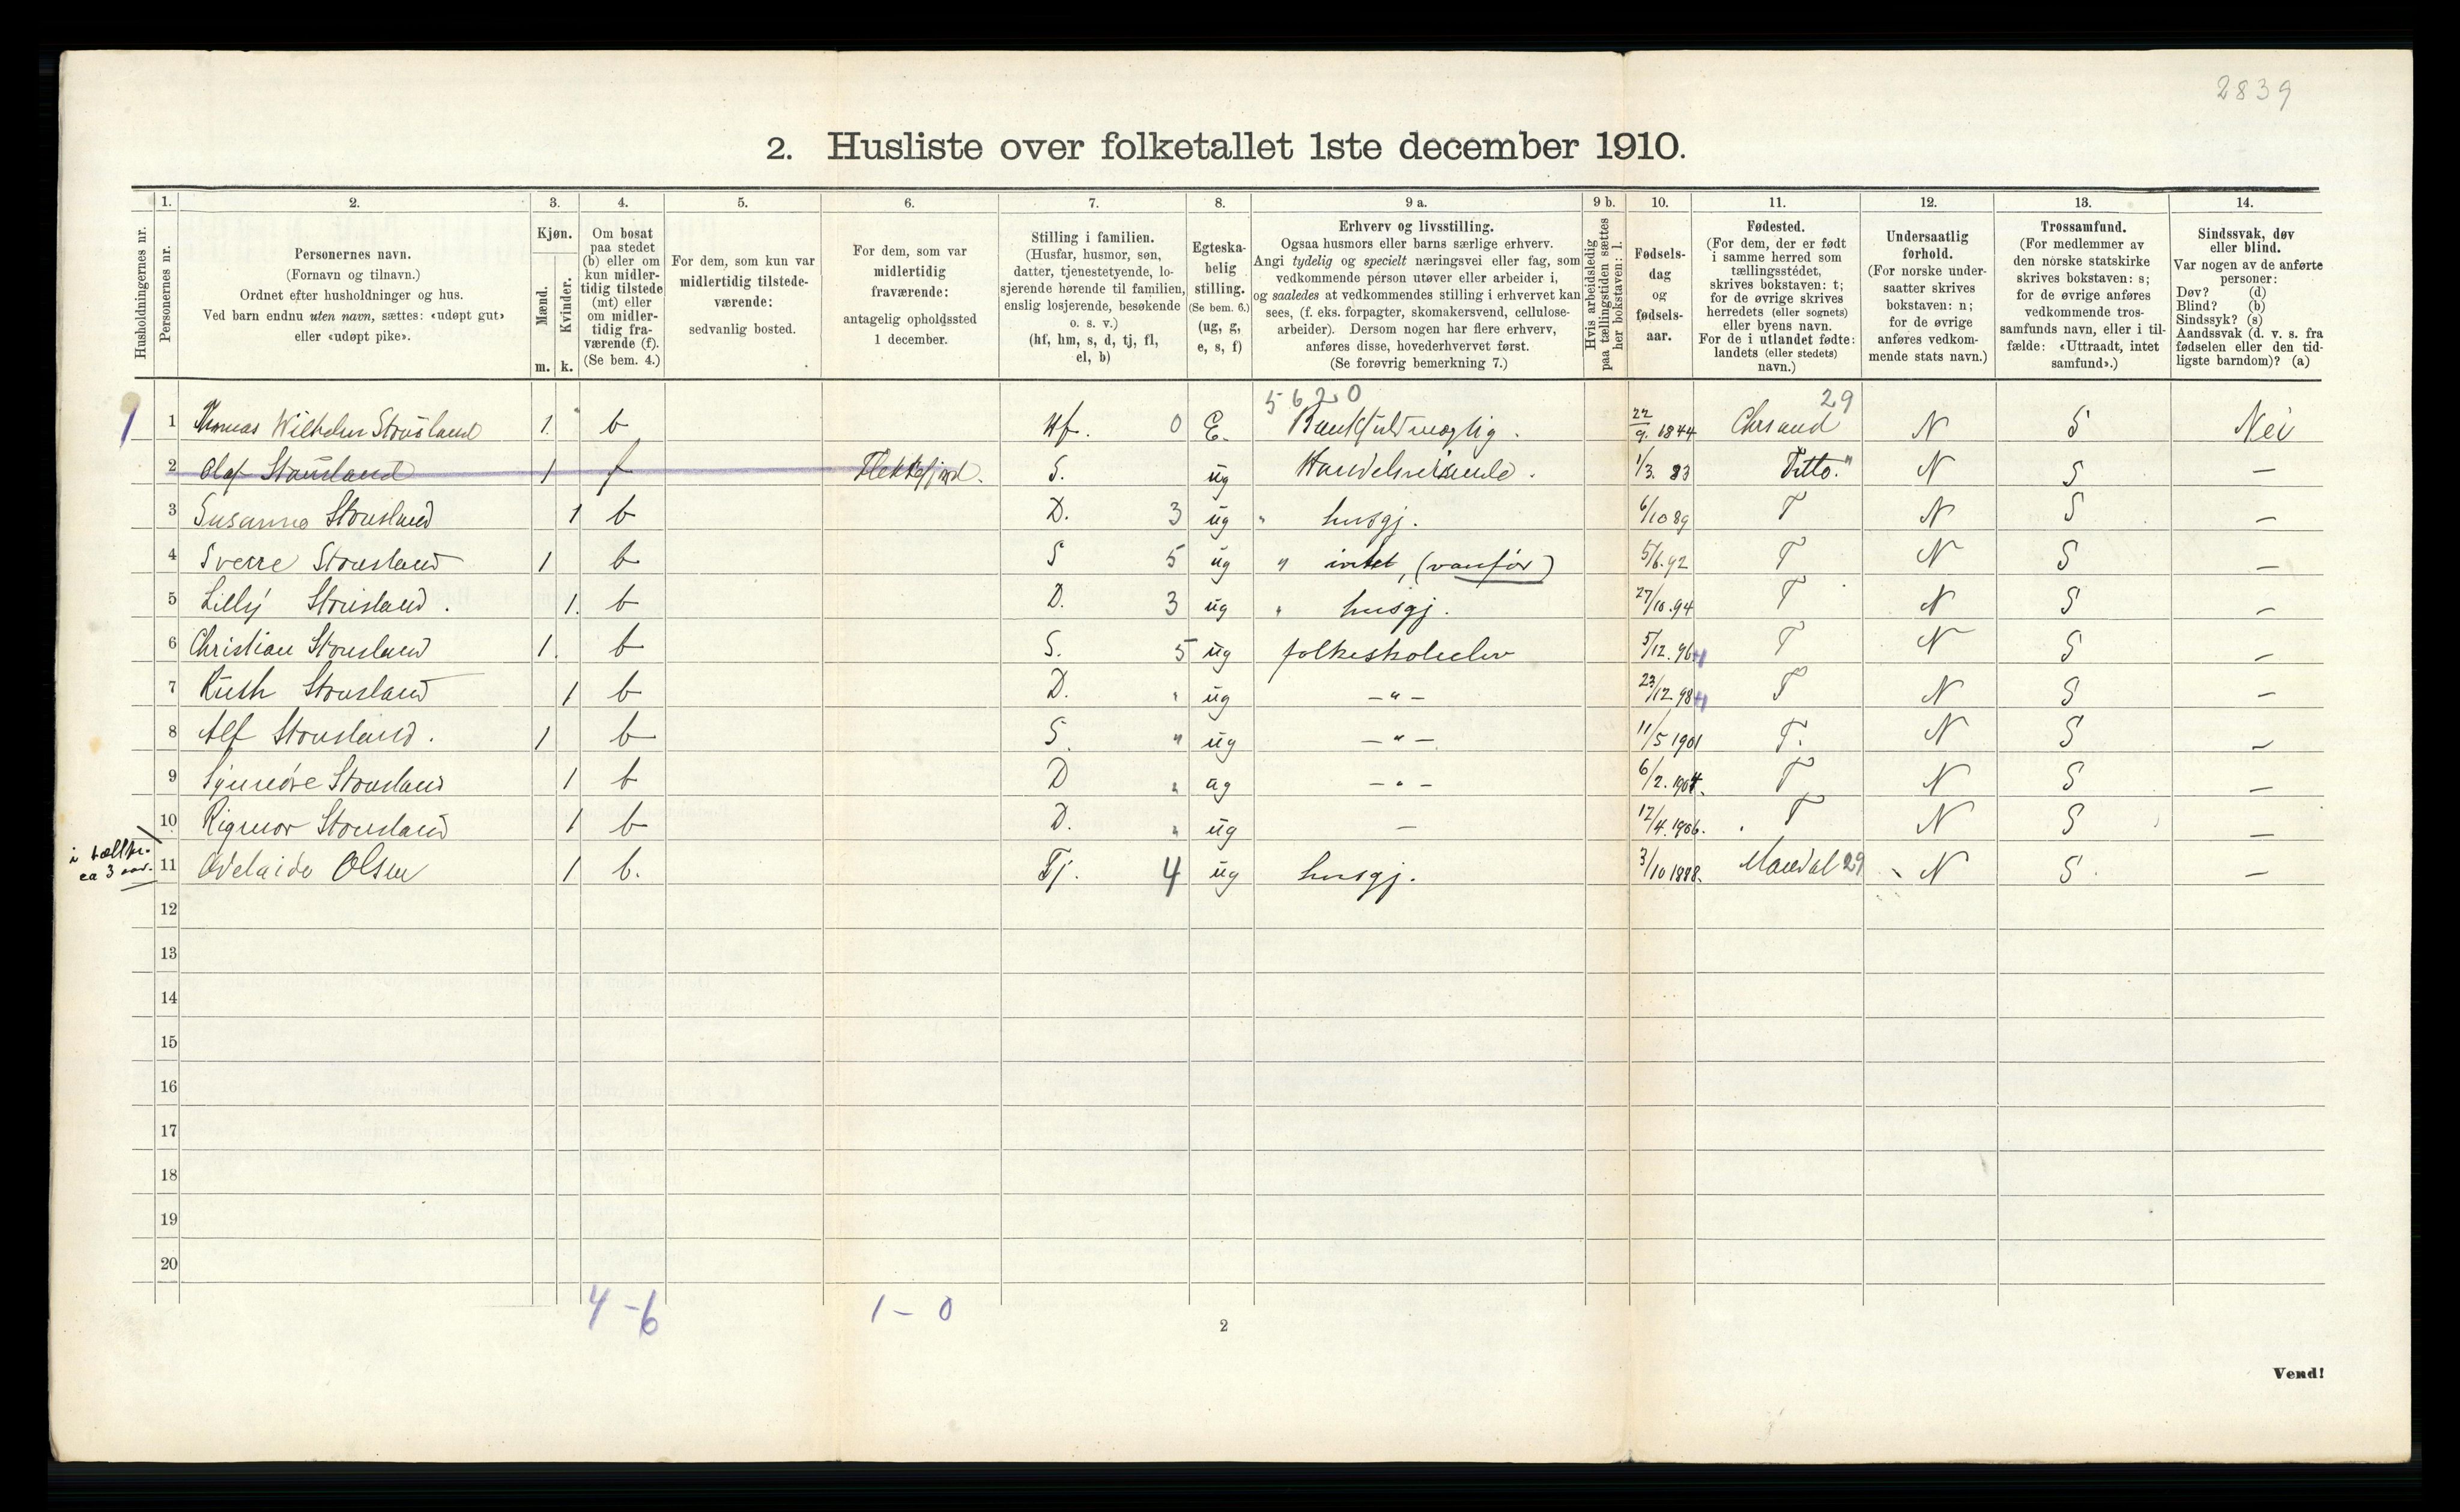 2839
2. Husliste over folketallet 1ste december 1910.
Husholdningernes nr.
1.
Personernes nr.
2.
Personernes navn.
(Fornavn og tilnavn.)
Ordnet efter husholdninger og hus.
Ved barn endnu uten navn, sættes: «udøpt gut»
eller «udøpt pike».
3.
Kjøn.
Mænd.
Kvinder.
m. k.
4.
Om bosat
paa stedet
(b) eller om
kun midler-
tidig tilstede
(mt) eller
om midler-
tidig fra-
værende (f).
(Se bem. 4.)
5.
For dem, som kun var
midlertidig tilstede-
værende:
sedvanlig bosted.
6.
For dem, som var
midlertidig
fraværende:
antagelig opholdssted
1 december.
7.
Stilling i familien.
(Husfar, husmor, søn,
datter, tjenestetyende, lo-
sjerende hørende til familien,
enslig losjerende, besøkende
o. s. v.)
(hf, hm, s, d, tj, fl,
el, b)
8.
Egteska-
belig
stilling.
(Se bem. 6.)
(ug, g,
e, s, f)
9 a.
Erhverv og livsstilling.
Ogsaa husmors eller barns særlige erhverv.
Angi tydelig og specielt næringsvei eller fag, som
vedkommende person utøver eller arbeider i,
og saaledes at vedkommendes stilling i erhvervet kan
sees, (f. eks. forpagter, skomakersvend, cellulose-
arbeider). Dersom nogen har flere erhverv,
anføres disse, hovederhvervet først.
(Se forøvrig bemerkning 7.)
9 b.
Hvis arbeidsledig
paa tællingstiden sættes
her bokstaven: l.
10.
Fødsels-
dag
og
fødsels-
aar.
11.
Fødested.
(For dem, der er født
i samme herred som
tællingsstedet,
skrives bokstaven: t;
for de øvrige skrives
herredets (eller sognets)
eller byens navn.
For de i utlandet fødte:
landets (eller stedets)
navn.)
12.
Undersaatlig
forhold.
(For norske under-
saatter skrives
bokstaven: n;
for de øvrige
anføres vedkom-
mende stats navn.)
13.
Trossamfund.
(For medlemmer av
den norske statskirke
skrives bokstaven: s;
for de øvrige anføres
vedkommende tros-
samfunds navn, eller i til-
fælde: «Uttraadt, intet
samfund».)
14.
Sindssvak, døv
eller blind.
Var nogen av de anførte
personer:
Døv? (d)
Blind? (b)
Sindssyk? (s)
Aandssvak (d. v. s. fra
fødselen eller den tid-
ligste barndom)? (a)
5620 29
1 1 Thomas Wilhelm Stousland 1. b Hf. 0 E. Bankfuldmægtig. 22/9. 1844 Chrsand N S Nei
2 Olaf Stousland 1 f Flekkefjord. S. ug Handelsreisende. 1/3. 83 Ditto." N S —
3 Susanna Stousland 1 b D. 3 ug " husgj. 6/10 89 T N S —
4 Sverre Stousland 1 b S 5 ug " intet, (vanfør) 5/6.92 T N S —
5 Lilly Stousland. 1. b D. 3 ug " husgj. 27/10.94 T N S —
6 Christian Stousland 1. b S. 5 ug folkeskoleelev 5/12.96 T N S —
7 Ruth Stousland 1 b D. " ug —"— 23/12.98 T N S —
8 Alf Stousland. 1 b S. " ug —"— 11/5 1901 T. N S —
9 Synnøve Stousland 1 b D " ug —"— 6/2.1904. T N S —
10 Rigmor Stousland 1 b D. " ug — 12/4.1906. T N S —
i
ca 3 aar. 11 Adelaide Olsen 1 b. Tj. 4 ug husgj. 3/10 1888. Mandal 29 N S —
12
13
14
15
16
17
18
19
20
4 – 6 1 – 0
2
Vend!